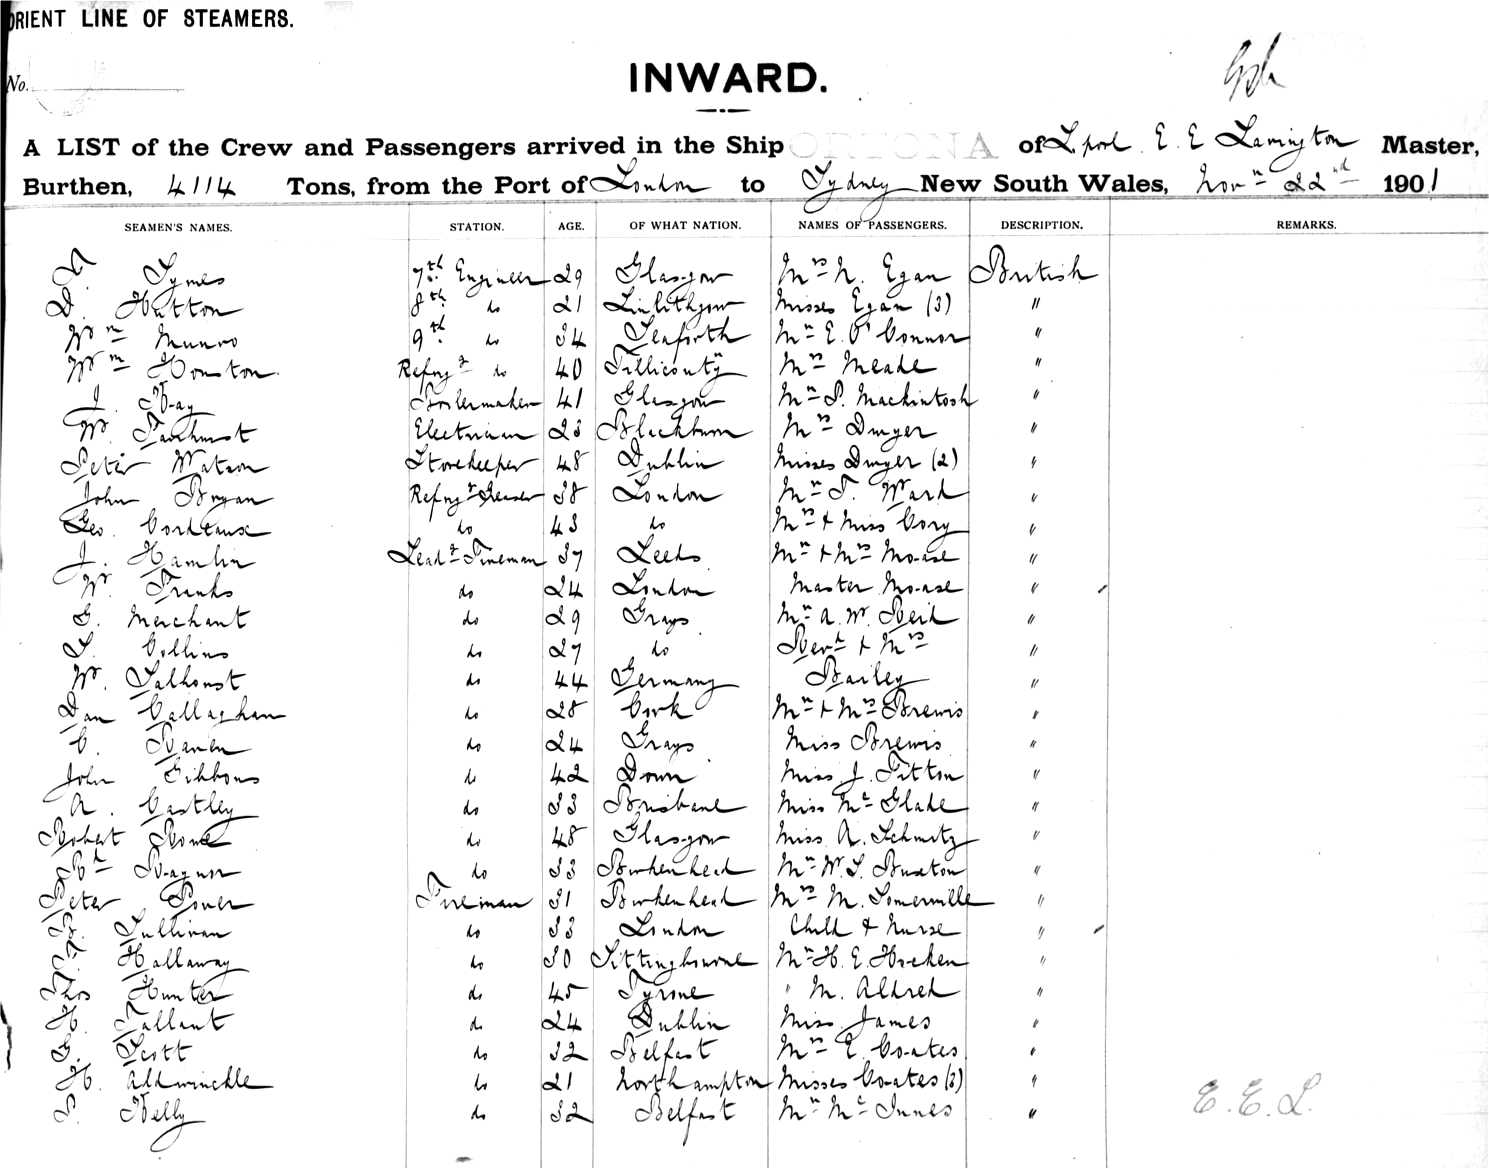 ORIENT LINE OF STEAMERS.
No.
INWARD.
A LIST of the Crew and Passengers arrived in the Ship ORTONA of L.pool E. E Lavington Master,
Burthen, 4114 Tons, from the Port of London to Sydney New South Wales, Novr 22nd 1901
SEAMEN'S NAMES. STATION. AGE. OF WHAT NATION. NAMES OF PASSENGERS. DESCRIPTION. REMARKS.
Symes 7th Engineer 29 Glasgow Mrs N. Egan British
D. Hutton 8th do 21 Linlithgow Misses Egan (3) "
Wm Munro 9th do 34 Seaforth Mr E. O'Connor "
Wm Houston. Refrgr do 40 Tillicoutry Mrs Meade "
J. Kay Boilermaker 41 Glasgow Mr P. Mackintosh "
W. Fairhurst Electrician 23 Blackburn Mrs Dwyer "
Peter Watson Storekeeper 48 Dublin Misses Dwyer (2) "
John Bryan Refrgr Greaser 38 London Mr T. Ward "
Geo. Cordeaux do 43 do Mrs + Miss Cory "
J. Hamlin Leadg Fireman 37 Leeds Mr + Mrs Moase "
W. Franks do 24 London Master Moase "
G. Merchant do 29 Grays Mr A. W. Reid "
S. Collins do 27 do Revd + Mrs "
W. Salhorst do 44 Germany Bailey "
Dan Callaghan do 28 Cork Mr + Mrs Brewis "
C. Raven do 24 Grays Miss Brewis "
John Gibbons do 42 Down Miss J. Fitton "
A. Castley do 33 Brisbane Miss Mc Glade "
Robert Rowe do 48 Glasgow Miss A. Schmitz "
Rd Raynor do 33 Birkenhead Mr W. S. Buxton "
Peter Power Fireman 31 Birkenhead Mrs M. Somerville "
B. Sullivan do 33 London Child + Nurse "
T. Hallaway do 30 Sittingbourne Mr H. E. Hocken "
Thos Hunter do 45 Tyrone " M. Aldred "
H. Tallant do 24 Dublin Miss James "
G. Scott do 32 Belfast Mrs E. Coates "
H. Aldwinckle do 21 Northampton Misses Coates (3) "
P. Kelly do 32 Belfast Mr Mc Innes "
E. E. L.